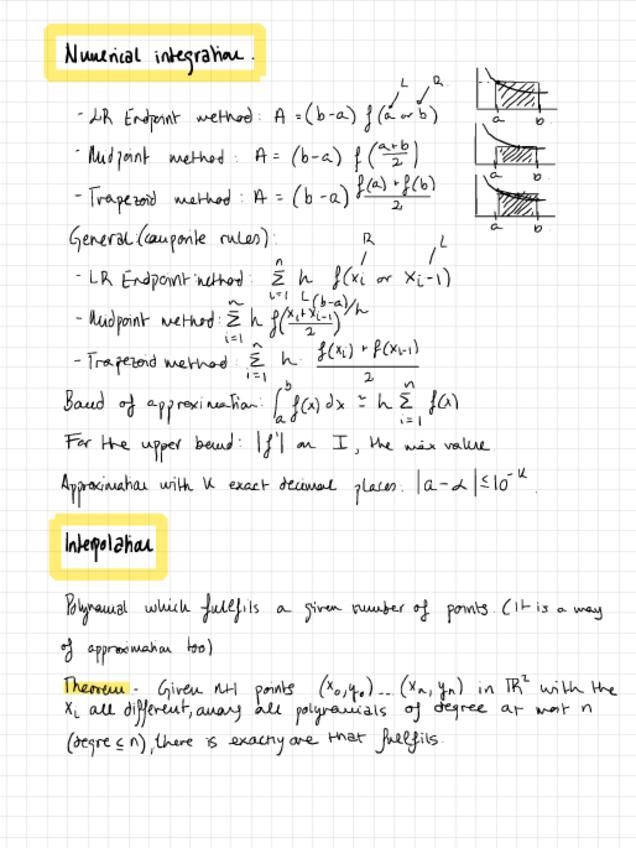 Numerical integration.
L R
- LR Endpoint method: A = (b-a) f(a or b)
- Midpoint method: A = (b-a) f((a+b)/2)
- Trapezoid method: A = (b-a) (f(a) + f(b))/2
a b
a b
a b
General: (composite rules):
R L
- LR Endpoint method: ∑_{i=1}^{n} h f(xi or xi-1)
L (b-a)/n
- Midpoint method: ∑_{i=1}^{n} h f((xi+xi-1)/2)
- Trapezoid method: ∑_{i=1}^{n} h · (f(xi) + f(xi-1))/2
Bound of approximation: ∫_a^b f(x) dx ≃ h ∑_{i=1}^{n} f(x)
For the upper bound: |f'| on I, the max value
Approximation with k exact decimal places: |a-α| ≤ 10^{-k}.
Interpolation
Polynomial which fullfils a given number of points. (It is a way
of approximation too)
Theorem - Given n+1 points (x0,y0)...(xn,yn) in ℝ² with the
xi all different, among all polynomials of degree at most n
(degre ≤ n), there is exactly one that fullfils.